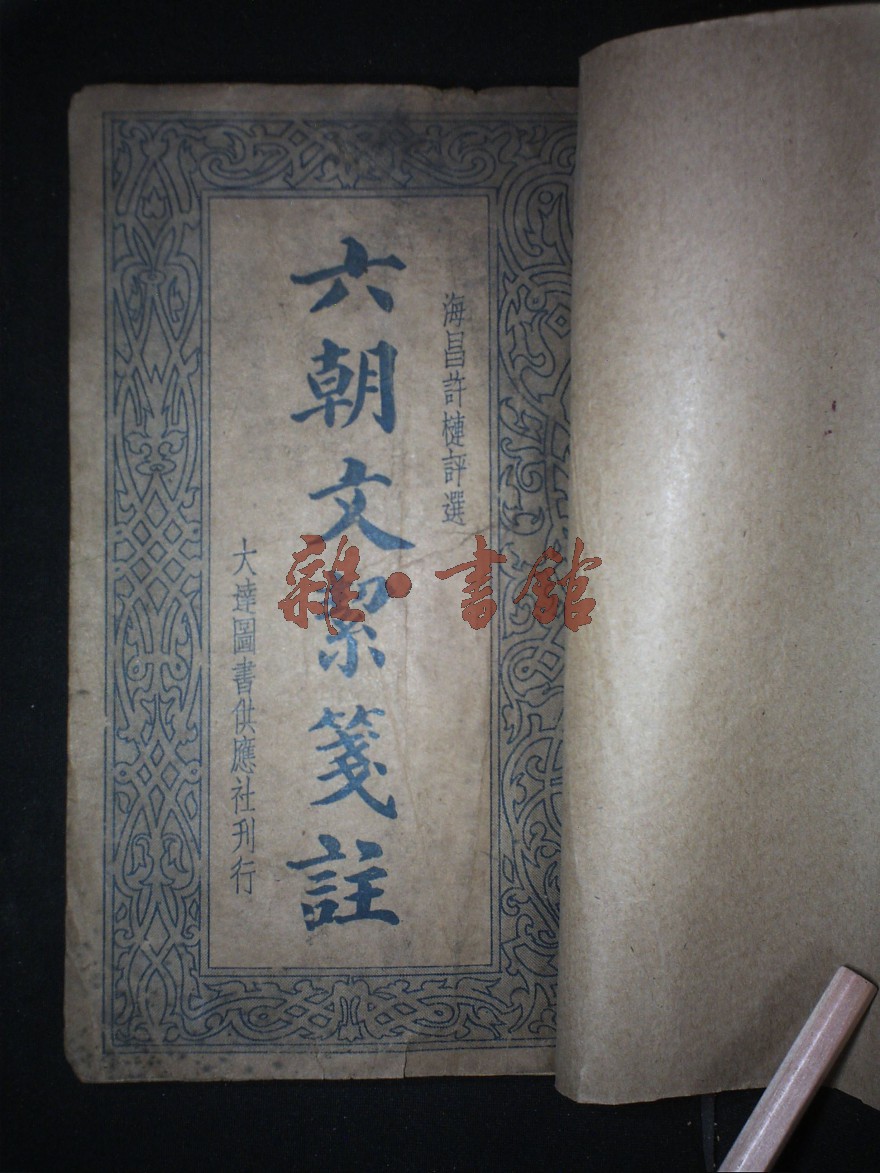 海昌許槤評選
六朝文絜箋註
大達圖書供應社刊行
雜·書館